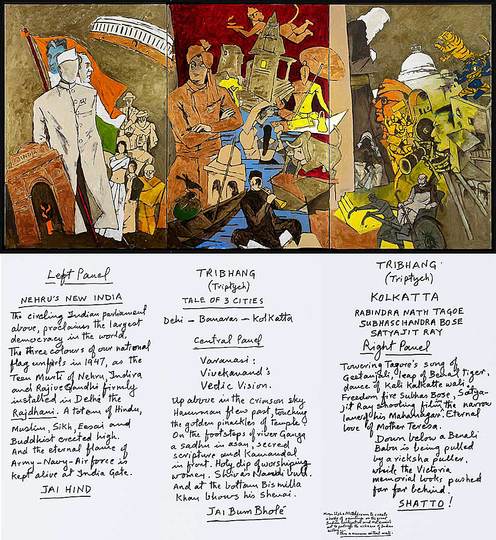 Left Panel
NEHRU'S NEW INDIA
The circling Indian parliament
above, proclaims the largest
democracy in the world.
The three colours of our national
flag unfurls in 1947, as the
Teen Murti of Nehru, Indira
and Rajive Gandhi firmly
installed in Delhi the
Rajdhani. A totem of Hindu,
Muslim, Sikh, Essai and
Buddhist erected high.
And the eternal flame of
Army-Navy-Air force is
kept alive at India Gate.
JAI HIND
TRIBHANG
(Triptych)
TALE OF 3 CITIES
Delhi - Banaras - Kolkatta
Central Panel
Varanasi:
Vivekanand's
Vedic Vision.
Up above in the crimson sky
Hanuman flew past, touching
the golden pinackles of temple.
On the footsteps of river Ganga
a sadhu in asan, sacred
scripture and Kamandal
in front. Holy dip of worshiping
women. Shiva's Nandi bull.
And at the bottom Bismilla
Khan blows his Shenai.
Jai Bum Bholé
TRIBHANG
(Triptych)
KOLKATTA
RABINDRA NATH TAGOE
SUBHASCHANDRA BOSE
SATYAJIT RAY
Right Panel
Towering Tagore's song of
Geetanjali, leap of Bengal Tiger.
dance of Kali Kalkatte wali
Freedom fire Subhas Bose, Satya-
jit Ray shooting film in the narrow
lanes of his Mahanagar. Eternal
love of Mother Teresa.
Down below a Benali
Babu is being pulled
by a ricksha puller,
while the Victoria
memorial looks pushed
far far behind.
SHATTO!